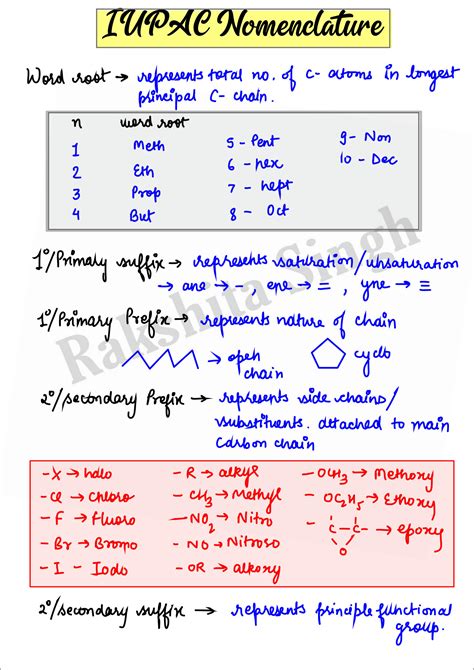 IUPAC Nomenclature
Word root → represents total no. of C-atoms in longest
principal C-chain.
n word root
1 Meth
2 Eth
3 Prop
4 But
5 - Pent
6 - hex
7 - hept
8 - Oct
9 - Non
10 - Dec
1°/Primary suffix → represents saturation/unsaturation
→ ane → - , ene → = , yne → ≡
1°/Primary Prefix → represents nature of chain
→ open
chain
→ cyclo
2°/secondary Prefix → represents side chains/
substituents attached to main
carbon chain
-X → halo
-Cl → Chloro
-F → Fluoro
-Br → Bromo
-I - Iodo
-R → alkyl
-CH₃ → Methyl
-NO₂ → Nitro
-NO → Nitroso
-OR → alkoxy
-OCH₃ → Methoxy
-OC₂H₅ → Ethoxy
-C-C- → epoxy
O
2°/secondary suffix → represents principle functional
group.
Rakshita Singh